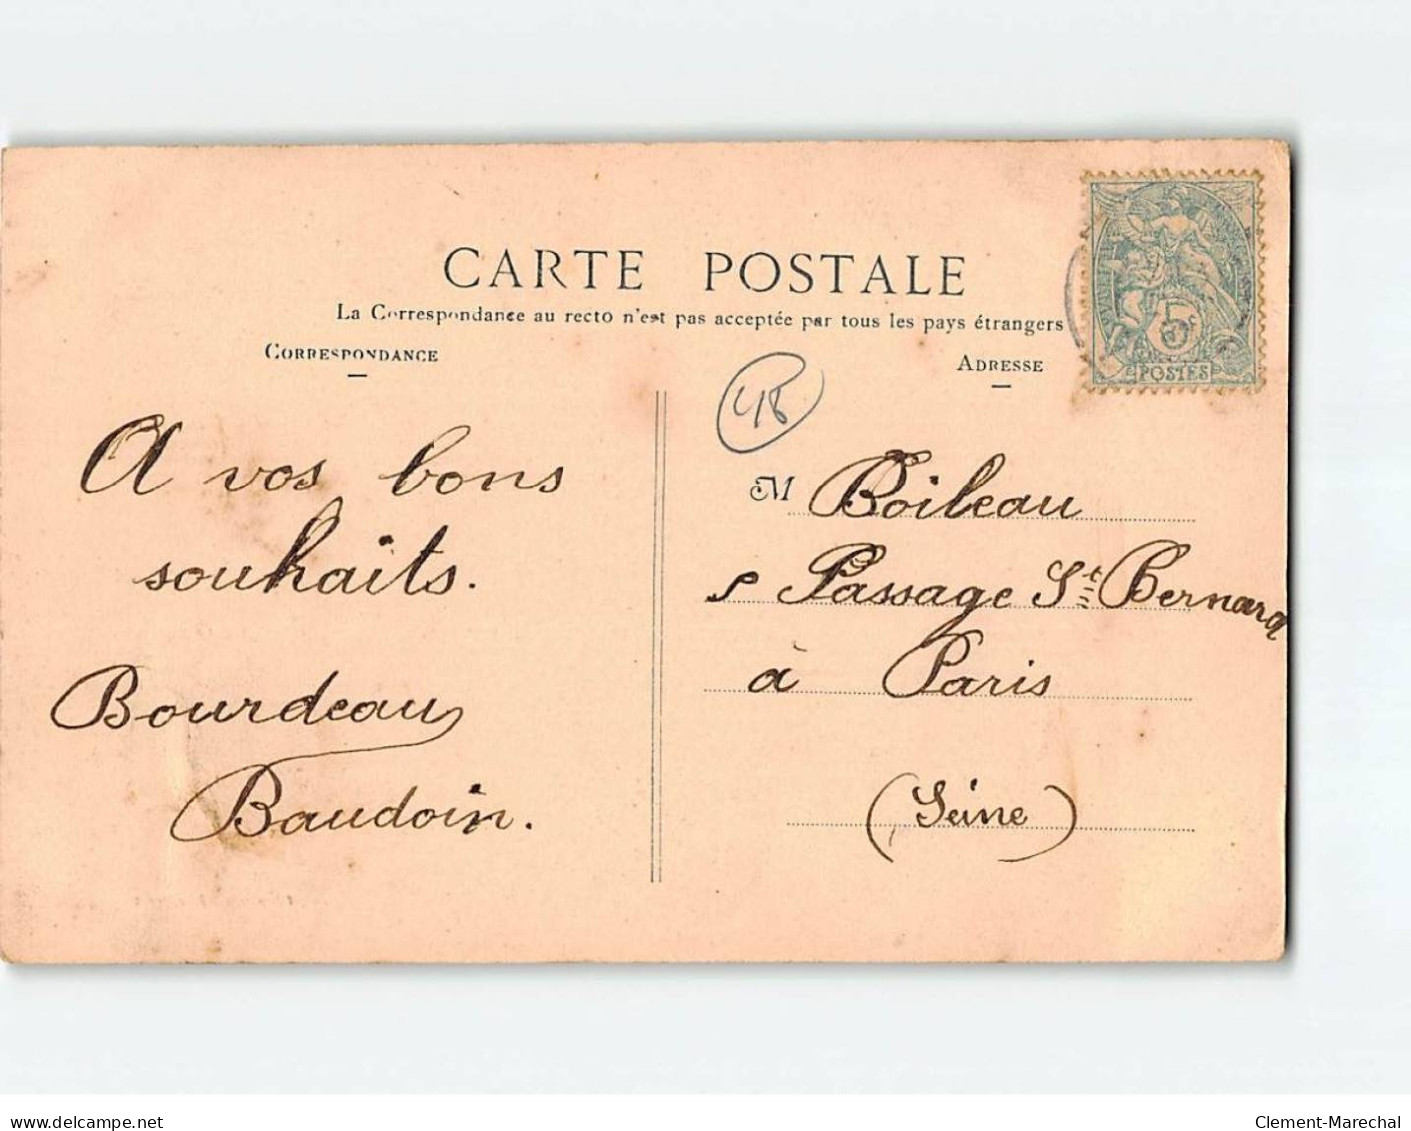 CARTE POSTALE
La Correspondance au recto n'est pas acceptée par tous les pays étrangers
CORRESPONDANCE
ADRESSE
5
POSTES
48
A vos bons
souhaits.
Bourdeau
Baudoin.
M Boileau
Passage St Bernard
à Paris
(Seine)
www.delcampe.net
Clement-Marechal